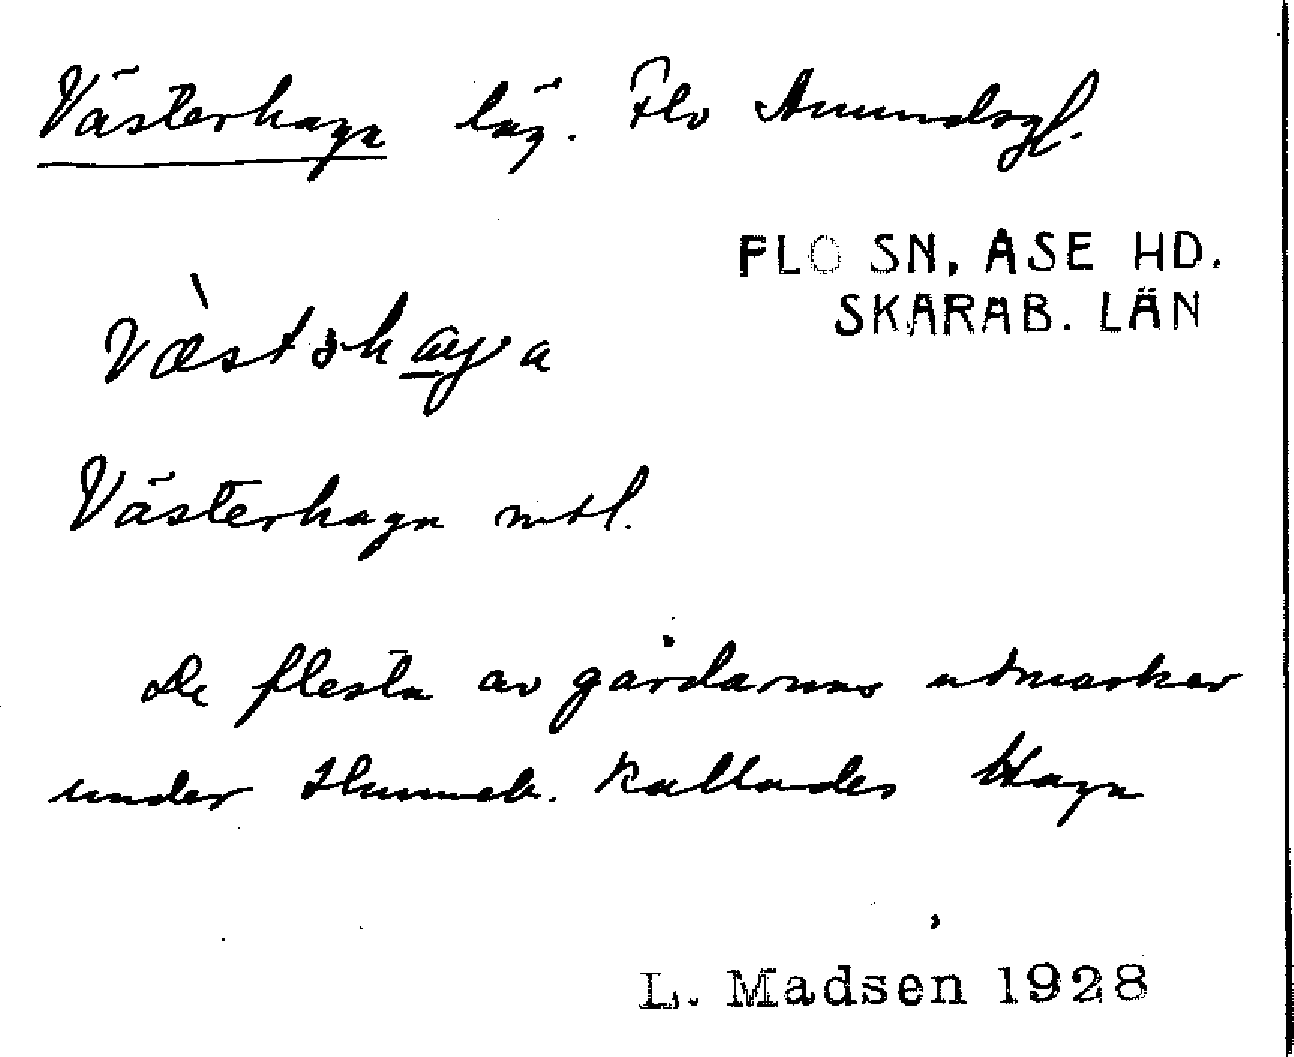 Västerhaga läg. Flo Amundsgl.
FLO SN, ASE HD.
SKARAB. LÄN
Væ̀stəhaga
Västerhaga mtl.
De flesta av gårdarnas utmarker
under Hunneb. kallades Haga
L. Madsen 1928